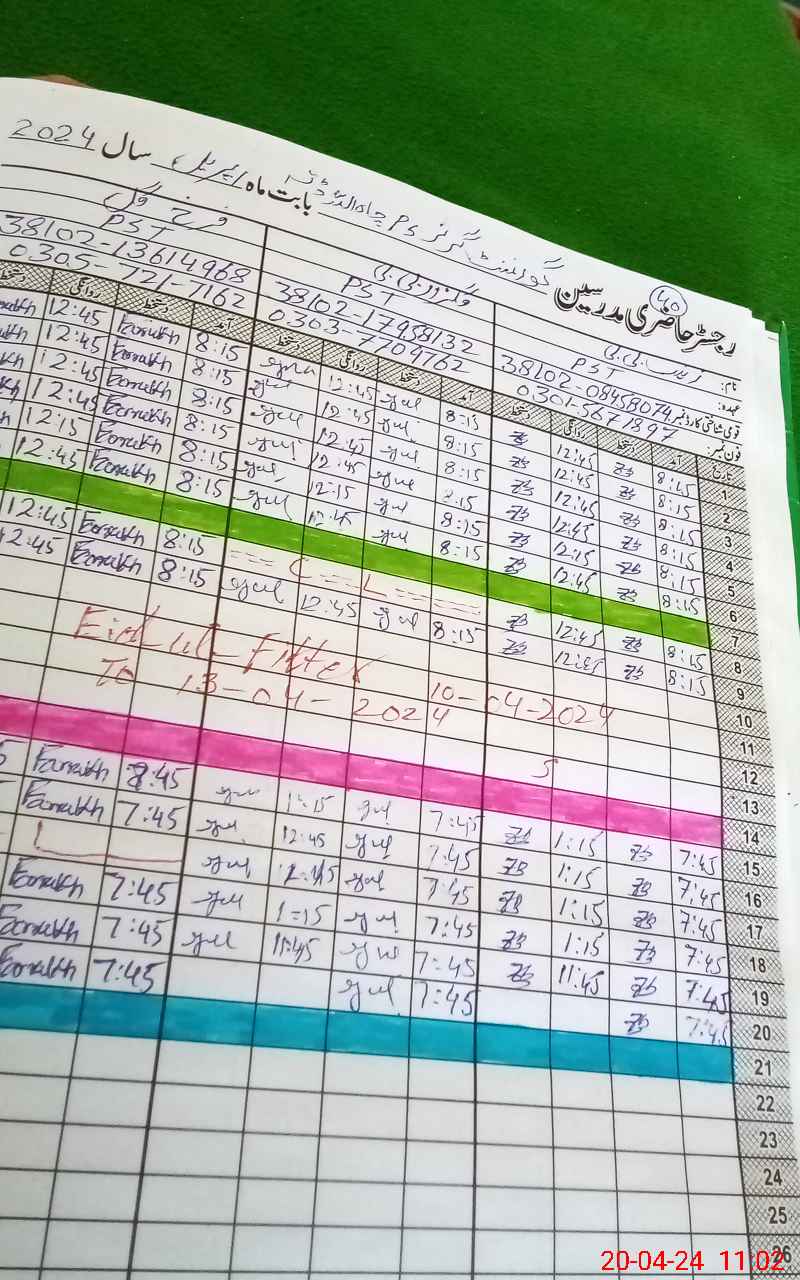 رجسٹر حاضری مدرسین گورنمنٹ گرلز PS چاہ بابت ماہ اپریل سال 2024
40
نام:
عہدہ: PST PST PST
قومی شناختی کارڈ نمبر 38102-08458074 38102-17958132 38102-13614968
فون نمبر: 0301-5671897 0303-7709762 0305-721-7162
تاریخ آمد دستخط روانگی دستخط آمد دستخط روانگی دستخط آمد دستخط روانگی دستخط
1 8:15 12:45 8:15 gul 12:45 8:15 Farrukh 12:45
2 8:15 12:45 8:15 gul 12:45 gul 8:15 Farrukh 12:45
3 8:15 12:45 8:15 gul 12:45 gul 8:15 Farrukh 12:45
4 8:15 12:45 8:15 gul 12:45 gul 8:15 Farrukh 12:45
5 8:15 12:15 8:15 gul 12:15 gul 8:15 Farrukh 12:15
6 8:15 12:45 8:15 gul 12:45 gul 8:15 Farrukh 12:45
7
8 8:15 12:45 C = L 8:15 Farrukh 12:45
9 8:15 12:45 8:15 gul 12:45 gul 8:15 Farrukh 12:45
Eid ul Fitter 10-04-2024
To 13-04-2024
10
11
12
13
14
15 7:45 1:15 7:45 gul 1:15 gul 8:45 Farrukh
16 7:45 1:15 7:45 gul 12:45 gul 7:45 Farrukh
17 7:45 1:15 7:45 gul 12:45 gul
18 7:45 1:15 7:45 gul 1:15 gul 7:45 Farrukh
19 7:45 11:45 7:45 gul 11:45 gul 7:45 Farrukh
20 7:45 7:45 gul 7:45 Farrukh
21
22
23
24
25
26
20-04-24 11:02